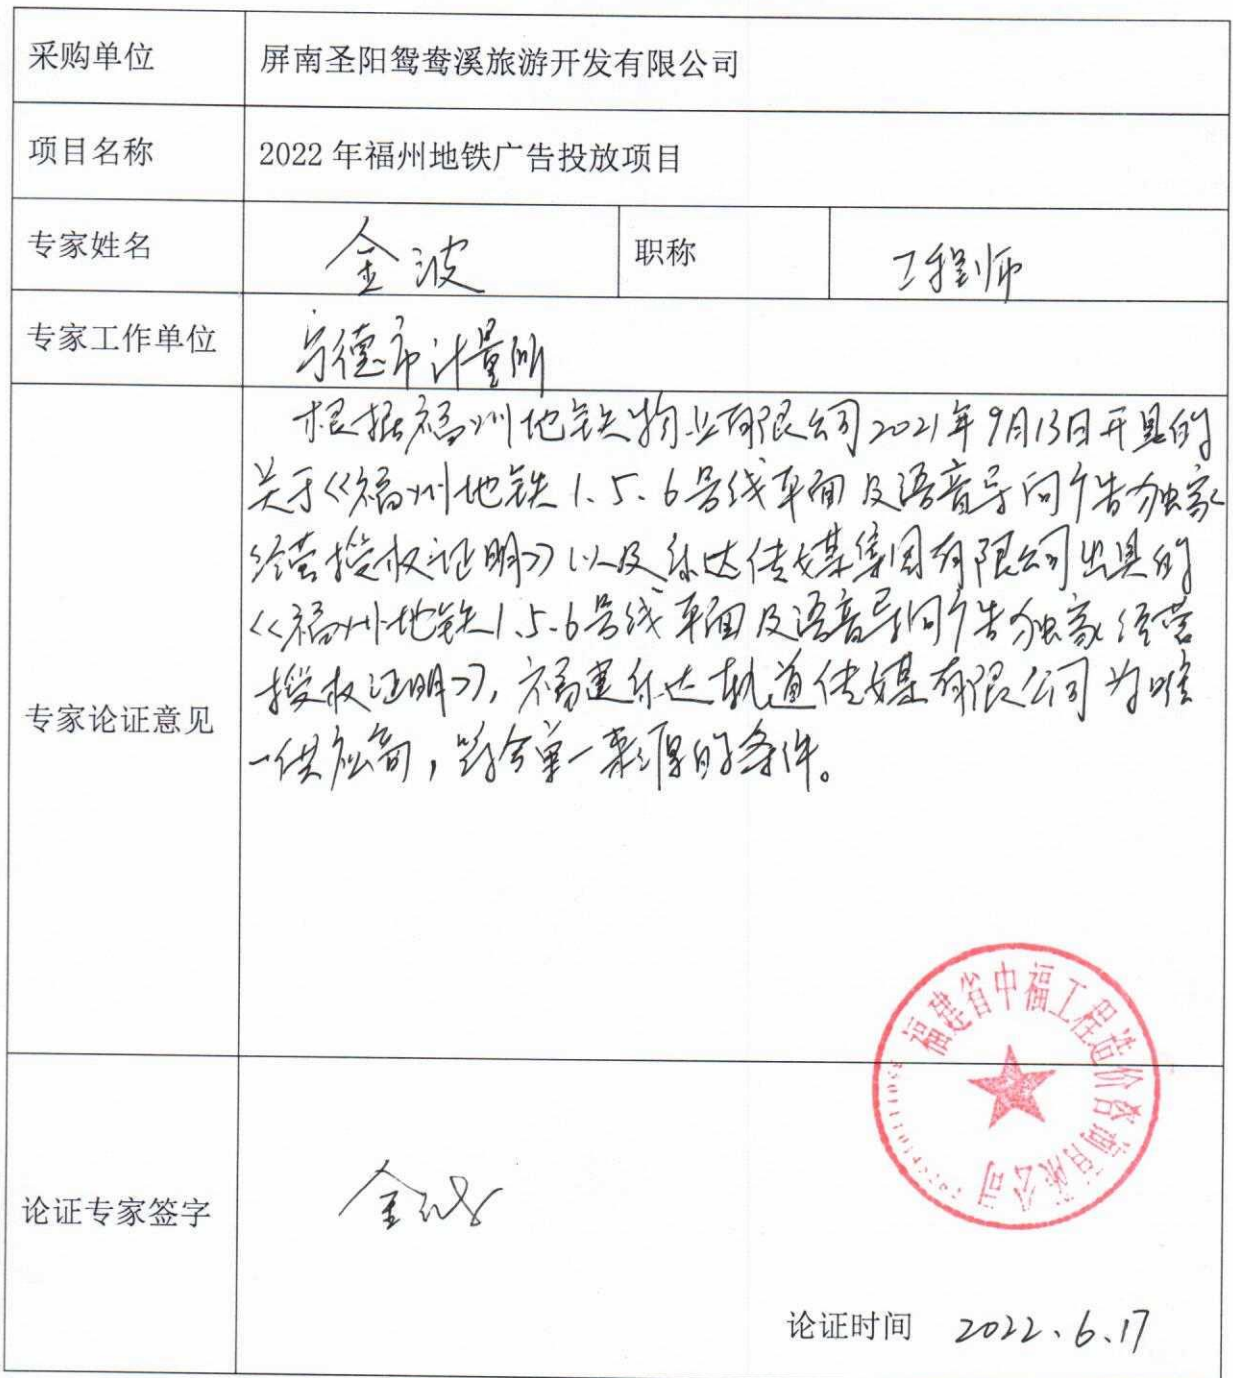 采购单位 屏南圣阳鸳鸯溪旅游开发有限公司
项目名称 2022年福州地铁广告投放项目
专家姓名 金波 职称 工程师
专家工作单位 宁德市计量所
专家论证意见
根据福州地铁物业有限公司2021年9月13日开具的
关于《福州地铁1、5、6号线车面及语音导向广告独家
经营授权证明》以及乐达传媒集团有限公司出具的
《福州地铁1、5、6号线车面及语音导向广告独家经营
授权证明》,福建乐达轨道传媒有限公司为唯
一供应商,符合单一来源的条件。
福建省中福工程造价咨询有限公司
论证专家签字 金波
论证时间 2022、6、17